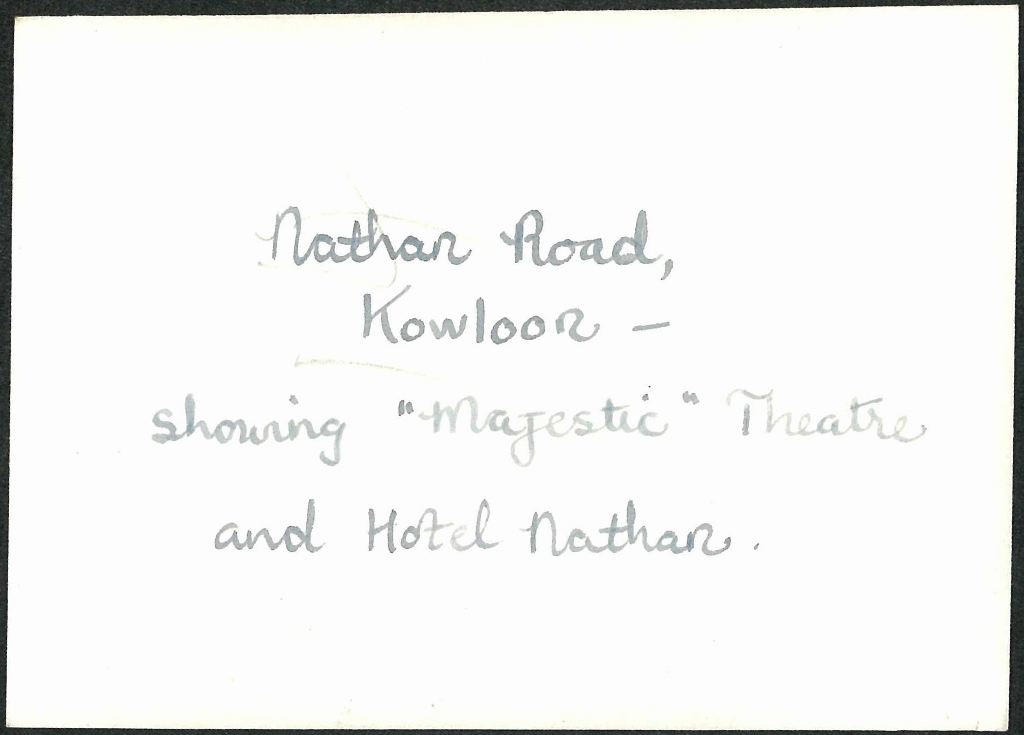 Nathan Road,
Kowloon —
showing "Majestic" Theatre
and Hotel Nathan.